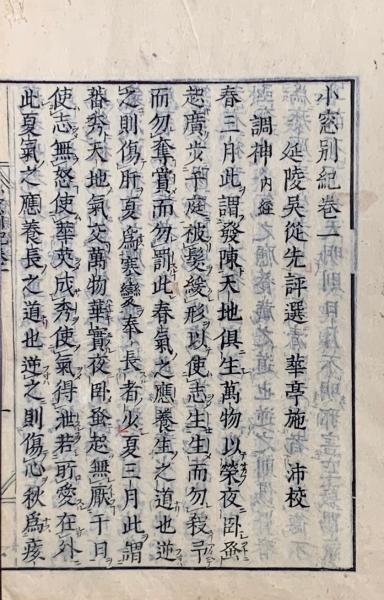 小窓別紀卷一
延陵吳從先評選 華亭施沛校
調神 內經
春三月此謂發陳天地俱生萬物以榮夜卧蚤
起廣步于庭被髮緩形以使志生生而勿殺予
而勿奪賞而勿罰此春氣之應養生之道也逆
之則傷肝夏爲寒變奉長者少夏三月此謂
蕃秀天地氣交萬物華實夜卧蚤起無厭于日
使志無怒使華英成秀使氣得泄若所愛在外
此夏氣之應養長之道也逆之則傷心秋爲痎